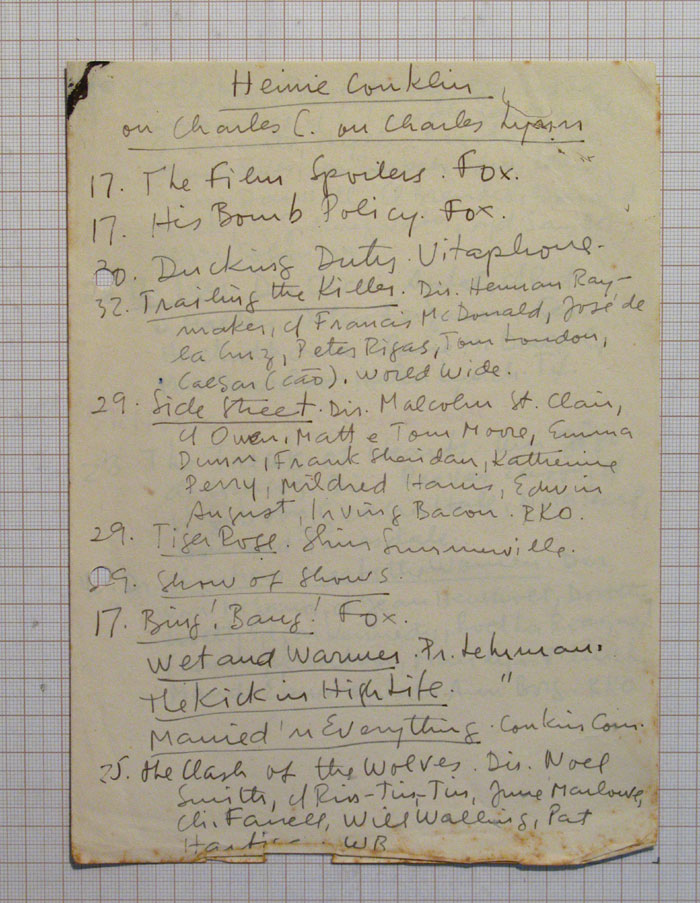 Heinie Conklin,
ou Charles C. ou Charles Lynn
17. The Film Spoilers. Fox.
17. His Bomb Policy. Fox.
30. Ducking Duty. Vitaphone.
32. Trailing the Killer. Dir. Herman Ray-
maker, c/ Francis McDonald, José de
la Cruz, Peter Rigas, Tom London,
Caesar (cão). World Wide.
29. Side Street. Dir. Malcolm St. Clair,
c/ Owen, Matt e Tom Moore, Emma
Dunn, Frank Sheridan, Kathrine
Perry, Mildred Harris, Edwin
August, Irving Bacon. RKO.
29. Tiger Rose. Slim Summerville.
29. Show of Shows.
17. Bing! Bang! Fox.
Wet and Warmer. Pr. Lehrman.
The Kick in High Life. "
Married 'n Everything. Conkin Com.
25. The Clash of the Wolves. Dir. Noel
Smith, c/ Rin-Tin-Tin, June Marlowe,
Ch. Farrell, Will Walling, Pat
WB